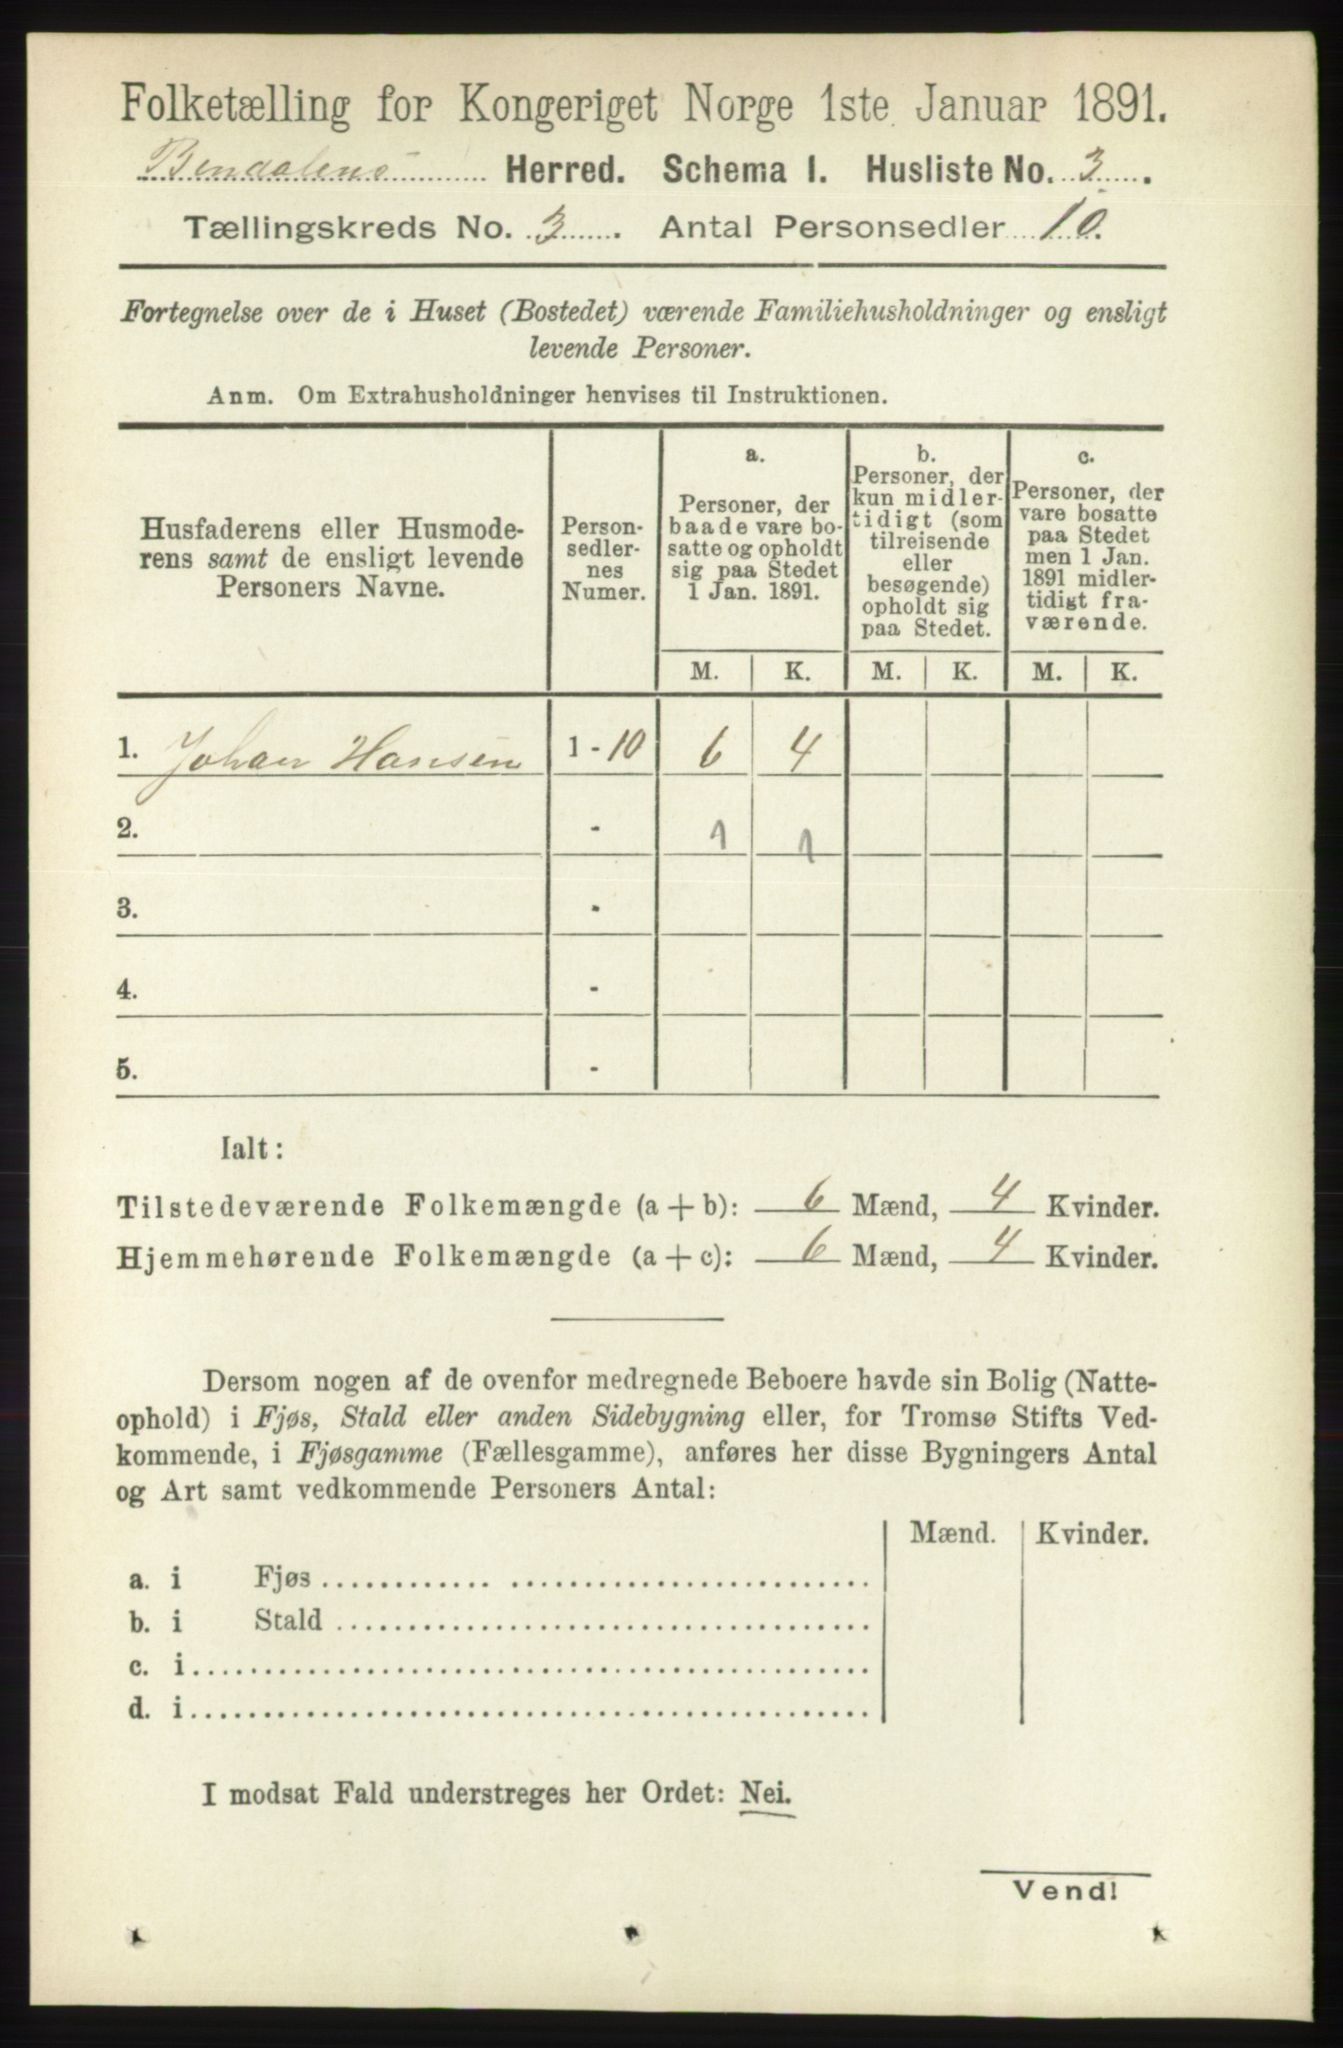 Folketælling for Kongeriget Norge 1ste Januar 1891.
Bindalens Herred. Schema I. Husliste No. 3.
Tællingskreds No. 3. Antal Personsedler 10.
Fortegnelse over de i Huset (Bostedet) værende Familiehusholdninger og ensligt
levende Personer.
Anm. Om Extrahusholdninger henvises til Instruktionen.
Husfaderens eller Husmode-
rens samt de ensligt levende
Personers Navne.
Person-
sedler-
nes
Numer.
a.
Personer, der
baade vare bo-
satte og opholdt
sig paa Stedet
1 Jan. 1891.
b.
Personer, der
kun midler-
tidigt (som
tilreisende
eller
besøgende)
opholdt sig
paa Stedet.
c.
Personer, der
vare bosatte
paa Stedet
men 1 Jan.
1891 midler-
tidigt fra-
værende.
M. K. M. K. M. K.
1. Johan Hansen 1 - 10 6 4
2. - 1 1
3. -
4. -
5. -
Ialt:
Tilstedeværende Folkemængde (a + b): 6 Mænd, 4 Kvinder.
Hjemmehørende Folkemængde (a + c): 6 Mænd, 4 Kvinder.
Dersom nogen af de ovenfor medregnede Beboere havde sin Bolig (Natte-
ophold) i Fjøs, Stald eller anden Sidebygning eller, for Tromsø Stifts Ved-
kommende, i Fjøsgamme (Fællesgamme), anføres her disse Bygningers Antal
og Art samt vedkommende Personers Antal:
Mænd. Kvinder.
a. i Fjøs
b. i Stald
c. i
d. i
I modsat Fald understreges her Ordet: Nei.
Vend!